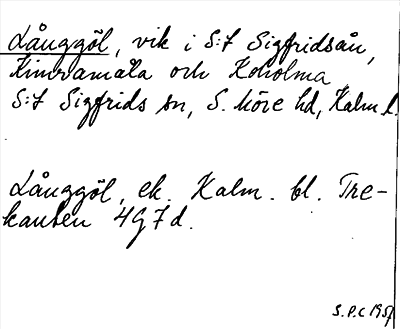 Långgöl, vik i S:t Sigfridsån,
Kimramåla och Koholma
S:t Sigfrids sn, S. Möre hd, Kalm. l.
Långgöl, ek. Kalm. bl. Tre-
kanten 4G7d.
S.P.C 1957